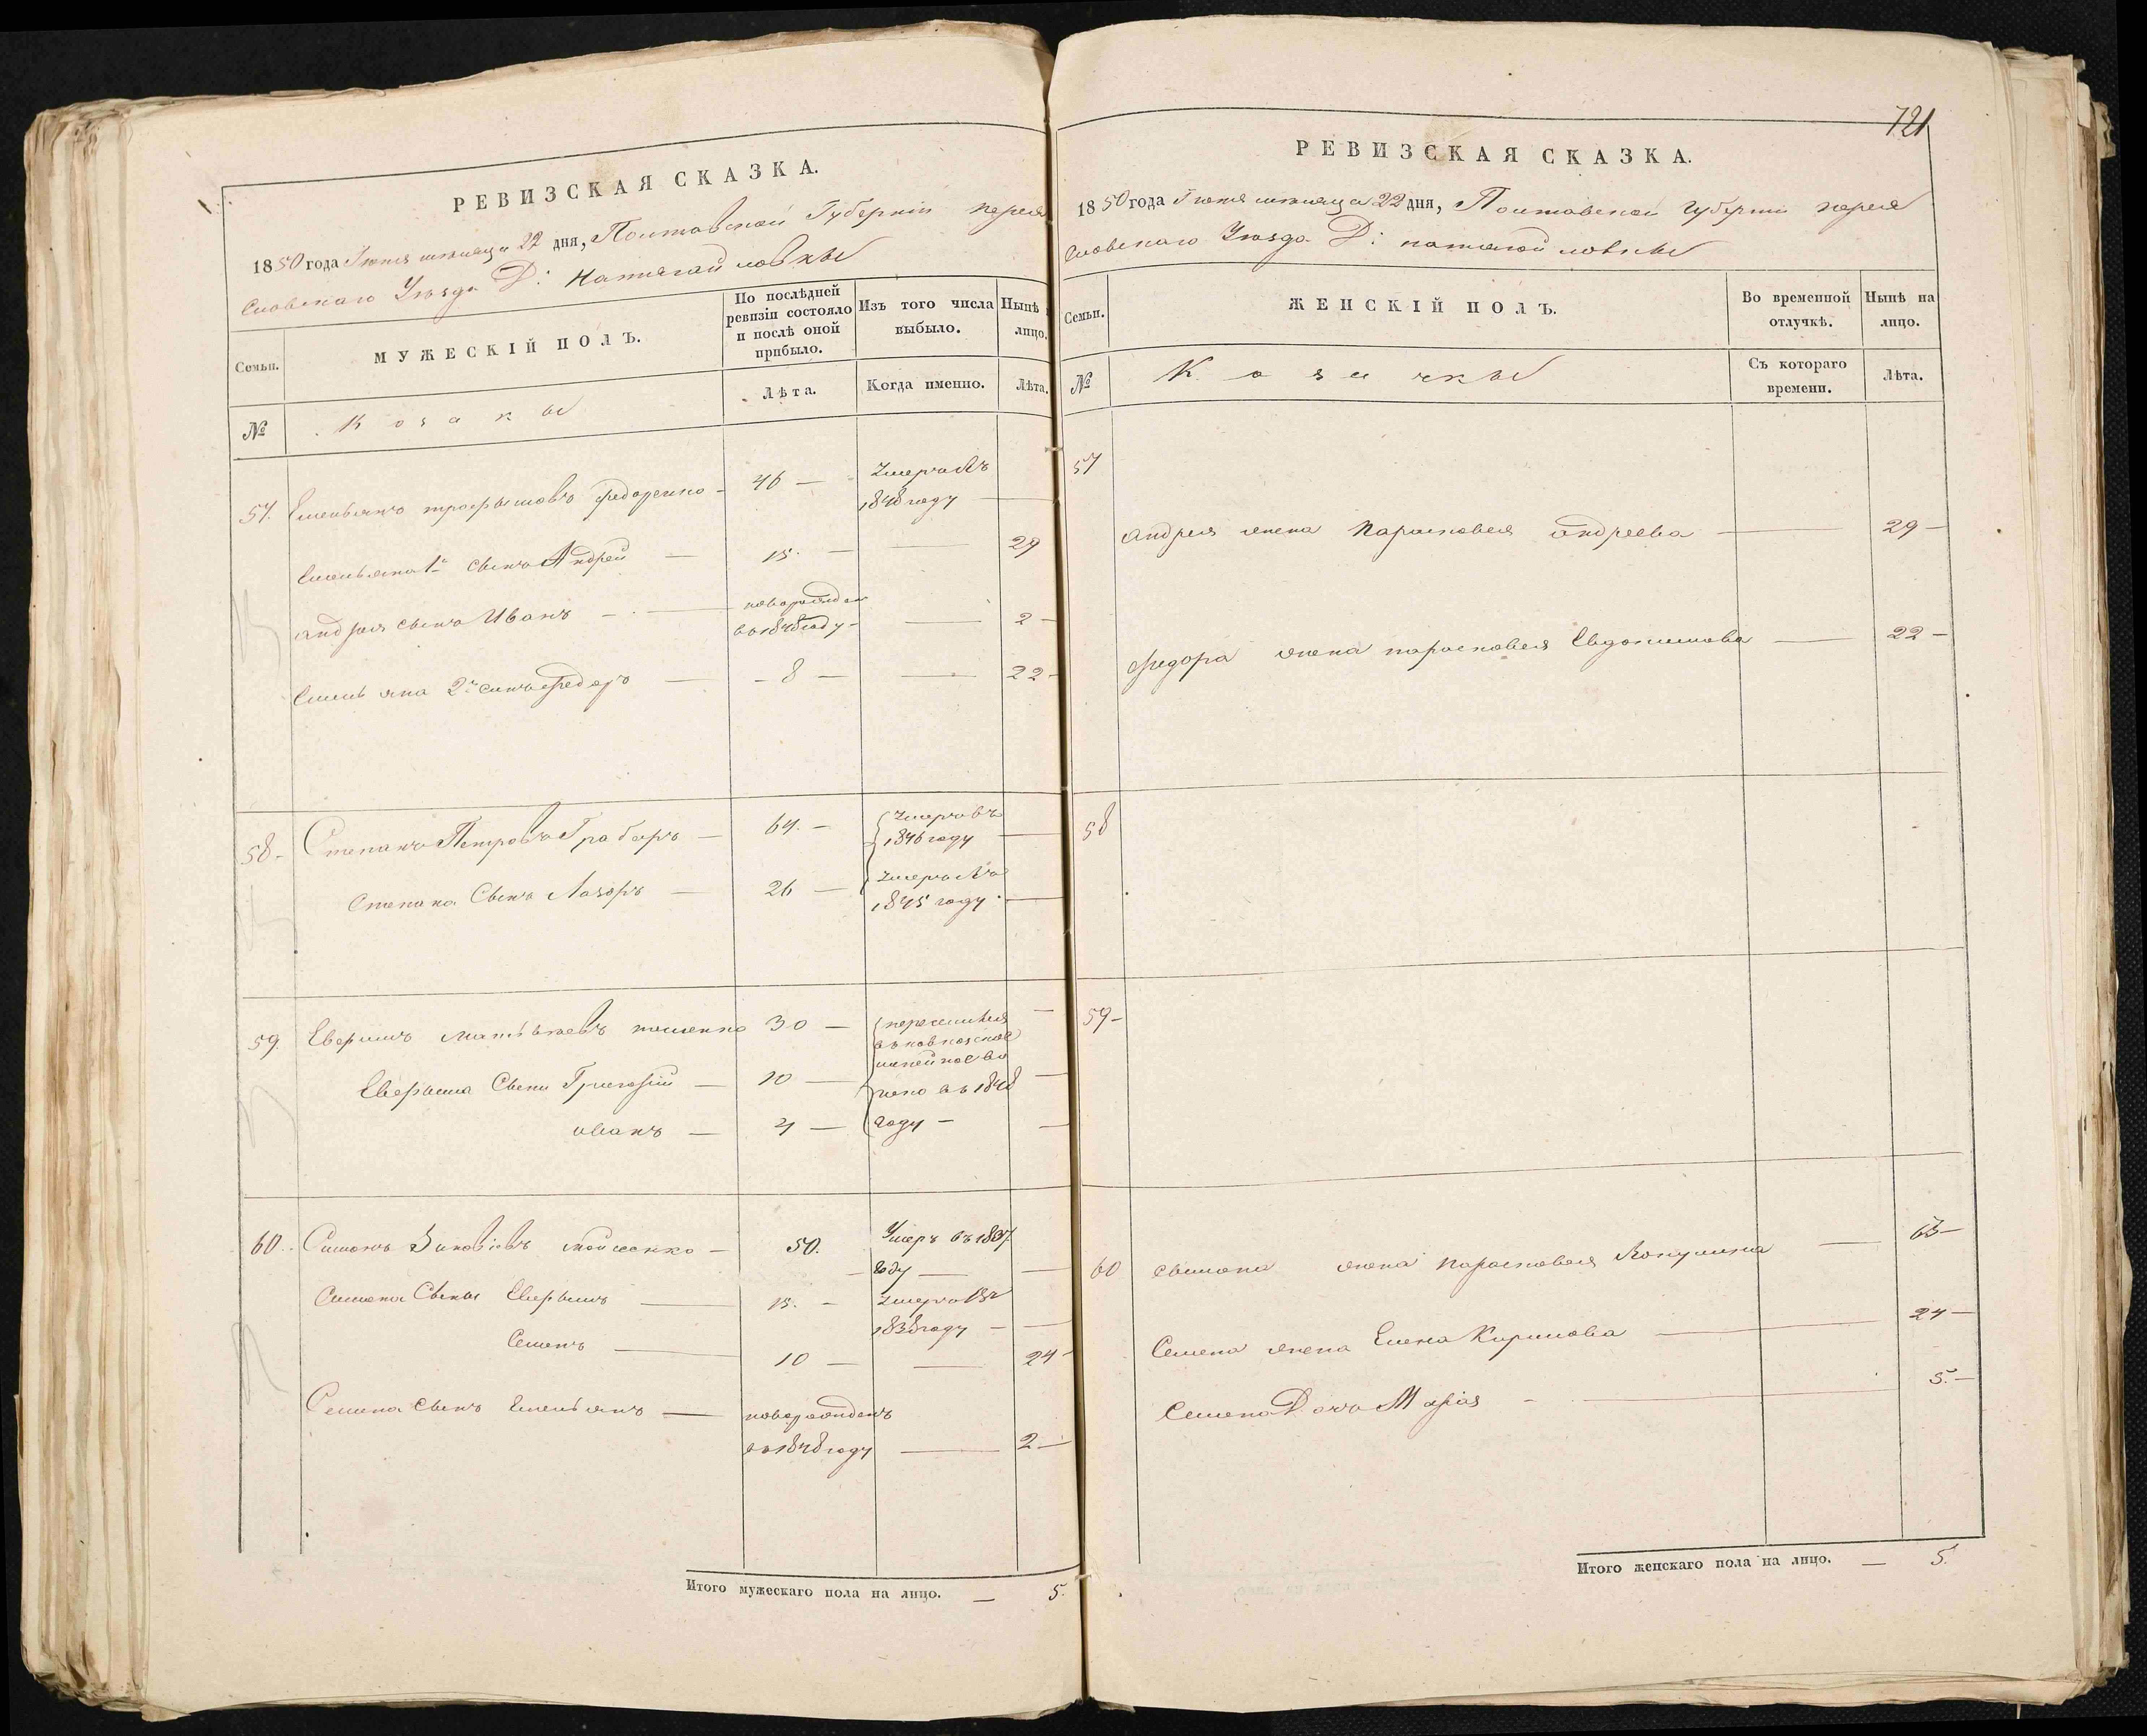 РЕВИЗСКАЯ СКАЗКА.
1850 года Июня месяца 22 дня, Полтавской Губернии Перея
Словскаго Уезда Д:
Семьи.
МУЖЕСКІЙ ПОЛЪ.
По послѣдней ревизіи состояло и послѣ оной прибыло.
Изъ того числа выбыло.
Нынѣ
лицо.
№
Козакы
Лѣта.
Когда именно.
Лѣта.
57. Емельянъ Трофымовъ Федоренко - 46 - Умеръ въ
1848 году
Емельяна 1й сынъ Андрей - 15. - 29
Андрея сынъ Иванъ - новорожден
въ 1848 году - 2 -
Емельяна 2й сынъ Федоръ - 8 - 22 -
58. Степанъ Петровъ Грабаръ - 64. - Умеръ въ
1846 году
Степана Сынъ Лазоръ - 26 - Умеръ въ
1845 году
59. Еверимъ 30 -
Еверыма Сыны Григорій - 10 - въ 1848
Иванъ - 4 - году -
60. Симонъ Зиновіевъ Мойсенко - 50. Умеръ въ 1837
году
Симона Сыны Еверымъ 15. - Умеръ въ
1838 году -
Семенъ 10 - 24 -
Семена Сынъ Емельянъ - новорожденъ
въ 1848 году 2 -
Итого мужескаго пола на лицо. — 5.
721
РЕВИЗСКАЯ СКАЗКА.
1850 года Июня месяца 22 дня, Полтавской Губерніи Перея
Словскаго Уезда Д:
Семьи.
ЖЕНСКІЙ ПОЛЪ.
Во временной отлучкѣ.
Нынѣ на лицо.
№
Козачкы
Съ котораго времени.
Лѣта.
57
Андрея жена Парасковея Андреева 29 -
Федора жена Парасковея Евдокимова 22 -
58
59 -
60 Симона жена Парасковея 63 -
Семена жена Елена Кирилова 24 -
Семена Дочь Марія - 5. -
Итого женскаго пола на лицо. — 5.